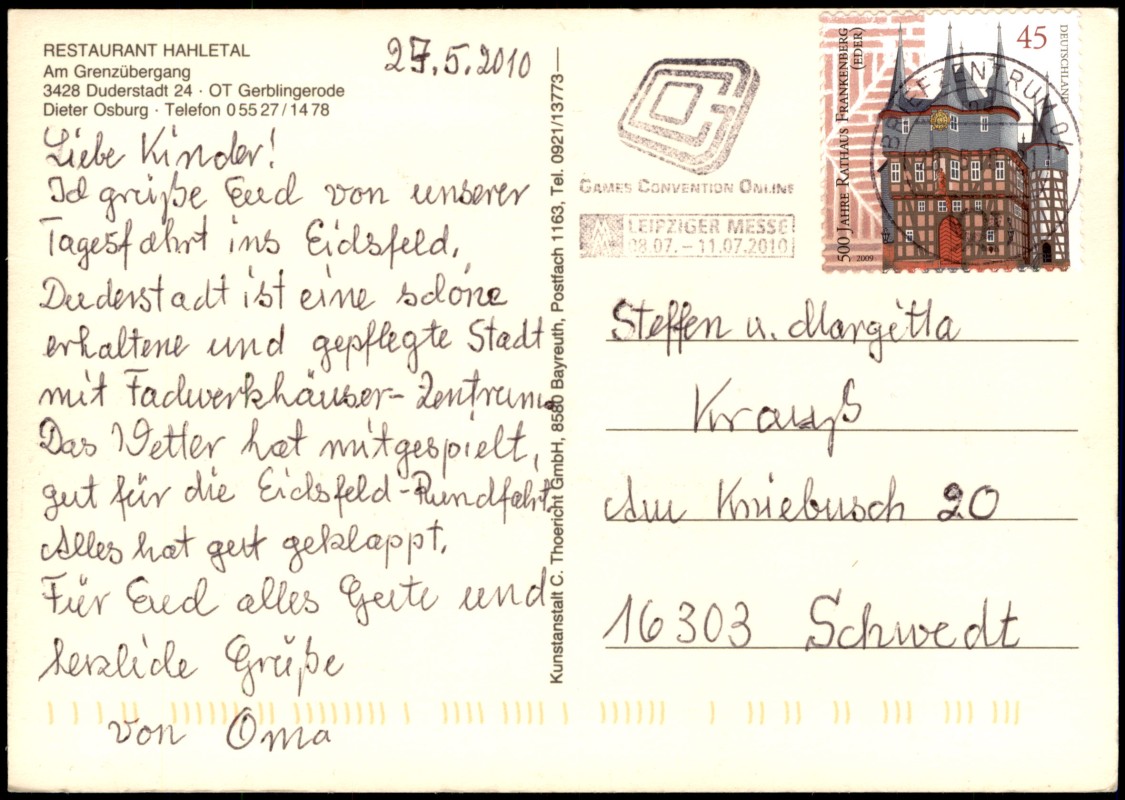 RESTAURANT HAHLETAL
Am Grenzübergang
3428 Duderstadt 24 · OT Gerblingerode
Dieter Osburg · Telefon 0 55 27 / 14 78
27.5.2010
Liebe Kinder!
Ich grüße Euch von unserer
Tagesfahrt ins Eichsfeld.
Duderstadt ist eine schöne
erhaltene und gepflegte Stadt
mit Fachwerkhäuser-Zentrum.
Das Wetter hat mitgespielt,
gut für die Eichsfeld-Rundfahrt.
Alles hat gut geklappt.
Für Euch alles Gute und
herzliche Grüße
von Oma
Kunstanstalt C. Thoericht GmbH, 8580 Bayreuth, Postfach 1163, Tel. 0921/13773
GAMES CONVENTION ONLINE
LEIPZIGER MESSE
08.07. – 11.07.2010
500 JAHRE RATHAUS FRANKENBERG
(EDER)
2009
45
DEUTSCHLAND
BRIEFZENTRUM 04
Steffen u. Margitta
Krauß
Am Kniebusch 20
16303 Schwedt